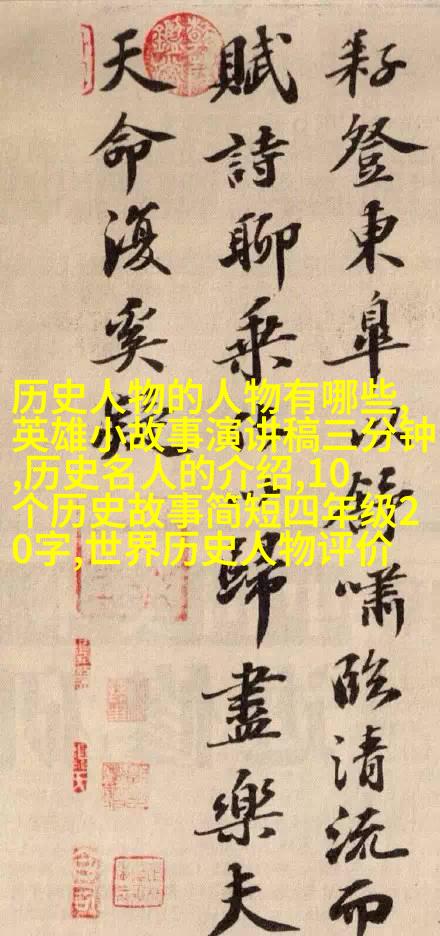 耔登東皋以舒嘯臨清流而
賦詩聊乘化以歸盡樂夫
天命復奚疑
历史人物的人物有哪些,
英雄小故事演讲稿三分钟
,历史名人的介绍,10
个历史故事简短四年级2
0字,世界历史人物评价